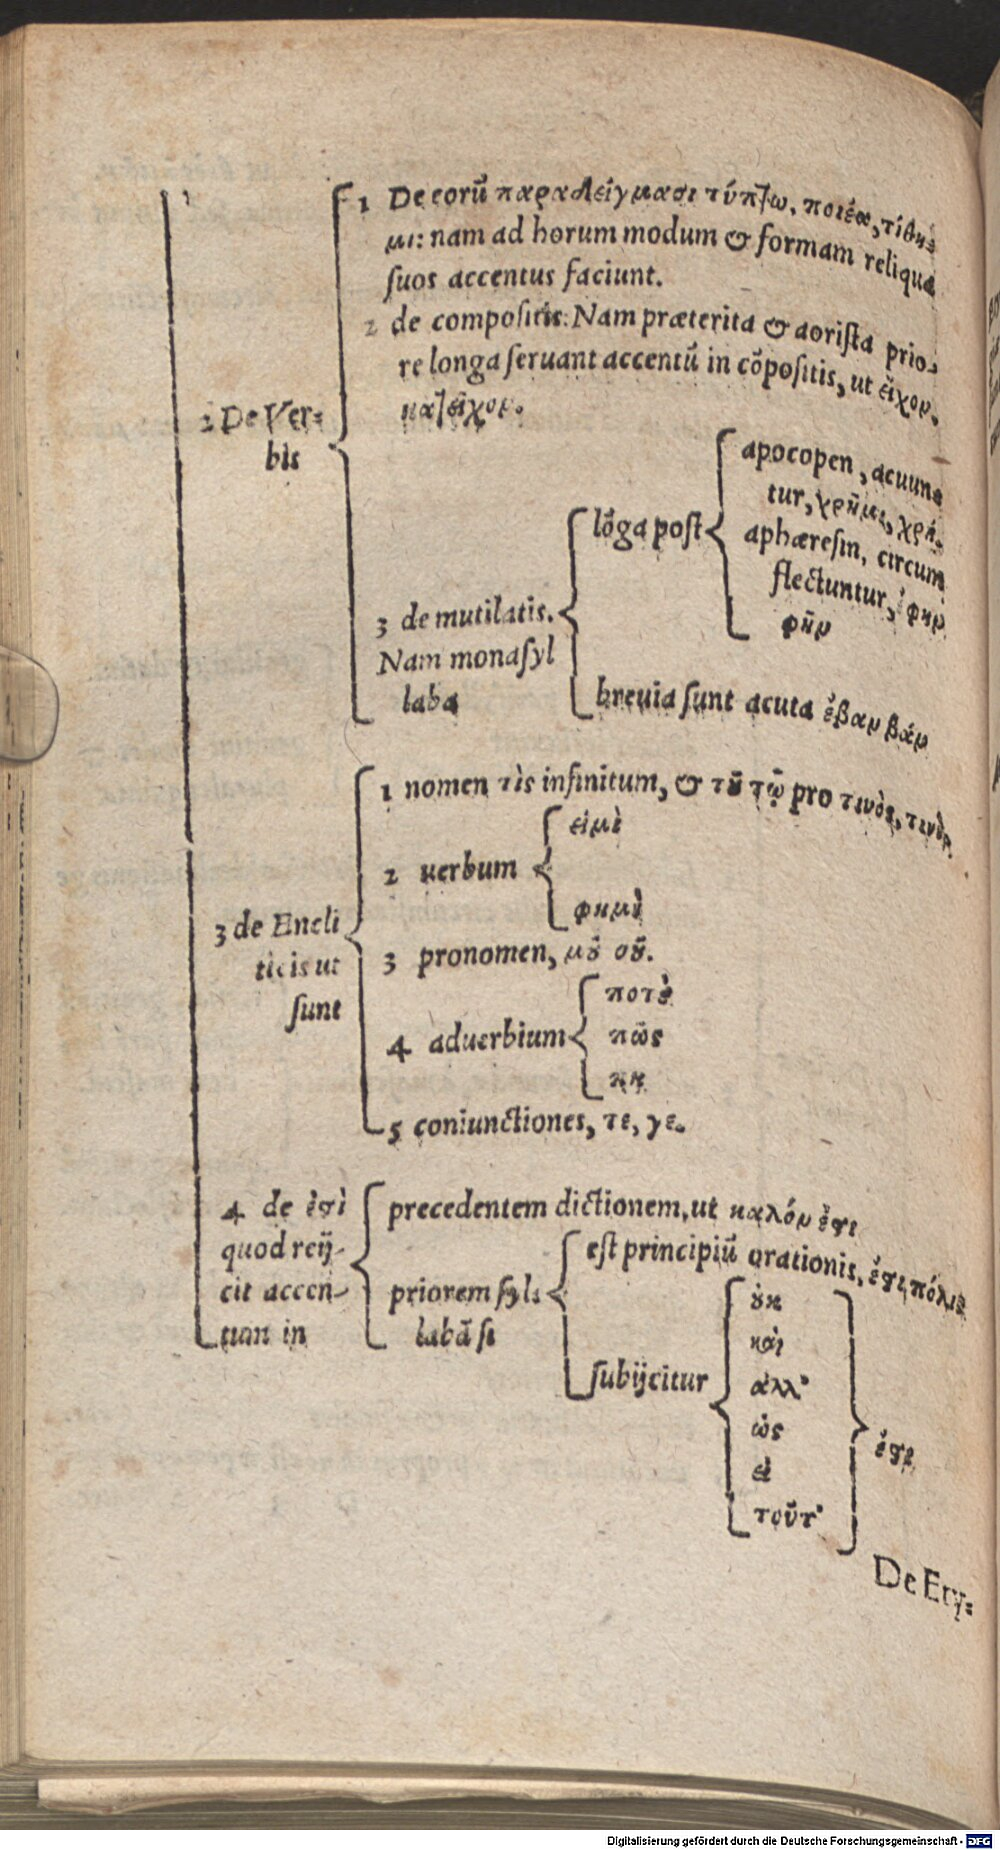 1 De eorū παραδείγμασι τύπτω, ποιέω, τίθη=
μι: nam ad horum modum & formam reliqua
ſuos accentus faciunt.
2 de compoſitis: Nam præterita & aoriſta prio=
re longa ſeruant accentū in cōpoſitis, ut εἶχον,
κατεῖχον.
2 De Ver=
bis
3 de mutilatis.
Nam monaſyl
laba
lōga poſt
apocopen, acuun=
tur, χρῆμι, χρή.
aphæreſin, circum
flectuntur, ἔφην
φῆν
breuia ſunt acuta ἔβαν βάν
3 de Encli
ticis ut
ſunt
1 nomen τὶς infinitum, & τȣ͂ τῷ pro τινὸς, τινὶ.
2 uerbum
εἰμὶ
φημὶ
3 pronomen, μȣ͂ σȣ͂.
4 aduerbium
ποτὲ
πῶς
πη
5 coniunctiones, τε, γε.
4 de ἐϛὶ
quod reij=
cit accen=
tum in
precedentem dictionem, ut καλόν ἐϛι
priorem ſyl=
labā ſi
eſt principiū orationis, ἔϛι πόλις
ſubijcitur
ȣ̓κ
καὶ
ἀλλ'
ὡς
εἰ
τοῦτ'
ἔϛι
De Ery=
Digitalisierung gefördert durch die Deutsche Forschungsgemeinschaft - DFG